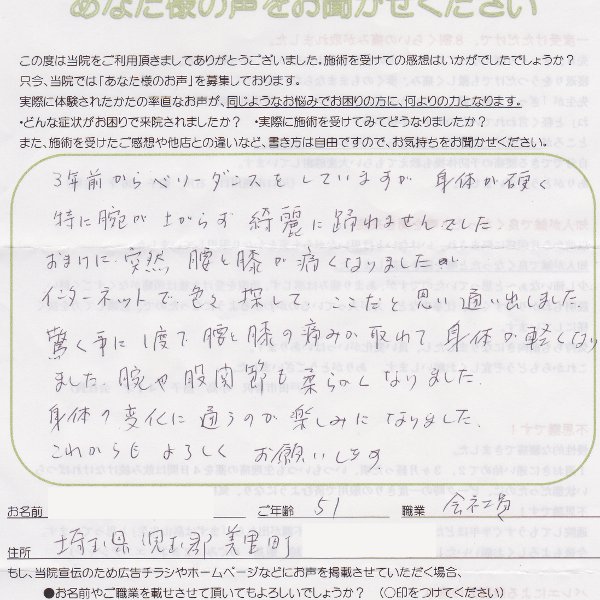 あなた様の声をお聞かせください
この度は当院をご利用頂きましてありがとうございました。施術を受けての感想はいかがでしたでしょうか？
只今、当院では「あなた様のお声」を募集しております。
実際に体験されたかたの率直なお声が、同じようなお悩みでお困りの方に、何よりの力となります。
・どんな症状がお困りで来院されましたか？ ・実際に施術を受けてみてどうなりましたか？
また、施術を受けたご感想や他店との違いなど、書き方は自由ですので、お気持ちをお聞かせください。
3年前からベリーダンスをしていますが 身体が硬く
特に腕が上がらず 綺麗に踊れませんでした
おまけに突然 腰と膝が痛くなりましたが
インターネットで色々探して、ここだと思い通い出しました。
驚く事に1度で腰と膝の痛みが取れて身体が軽くなり
ました。腕や股関節も柔らかくなりました。
身体の変化に通うのが楽しみになりました。
これからもよろしく お願いします
お名前 ご年齢 51 職業 会社員
住所 埼玉県児玉郡美里町
もし、当院宣伝のため広告チラシやホームページなどにお声を掲載させていただく場合、
●お名前やご職業を載せさせて頂いてもよろしいでしょうか？ （○印をつけてください）